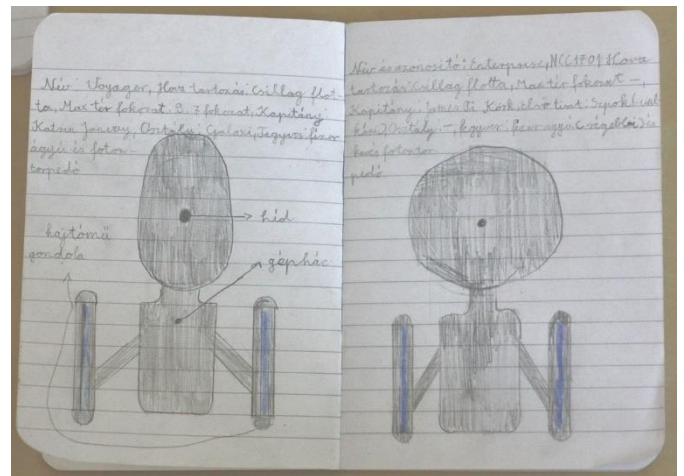 Név Voyager, Hova tartozás: Csillag flot-
ta, Max tér fokozat 9. 7 fokozat, Kapitány
Katrin Janevey, Osztály: Galaxi, Fegyver: fézor
ágyú és foton
torpedó
híd
hajtómű
gondola
gépház
Név és azonosító: Enterprise, NCC1701, Hova
tartozás: Csillag flotta, Max tér fokozat –,
Kapitány James Ti. Körk, első tiszt: Szpok
Osztály –, fegyver: fézer ágyú és
kevés fotontor
pedó